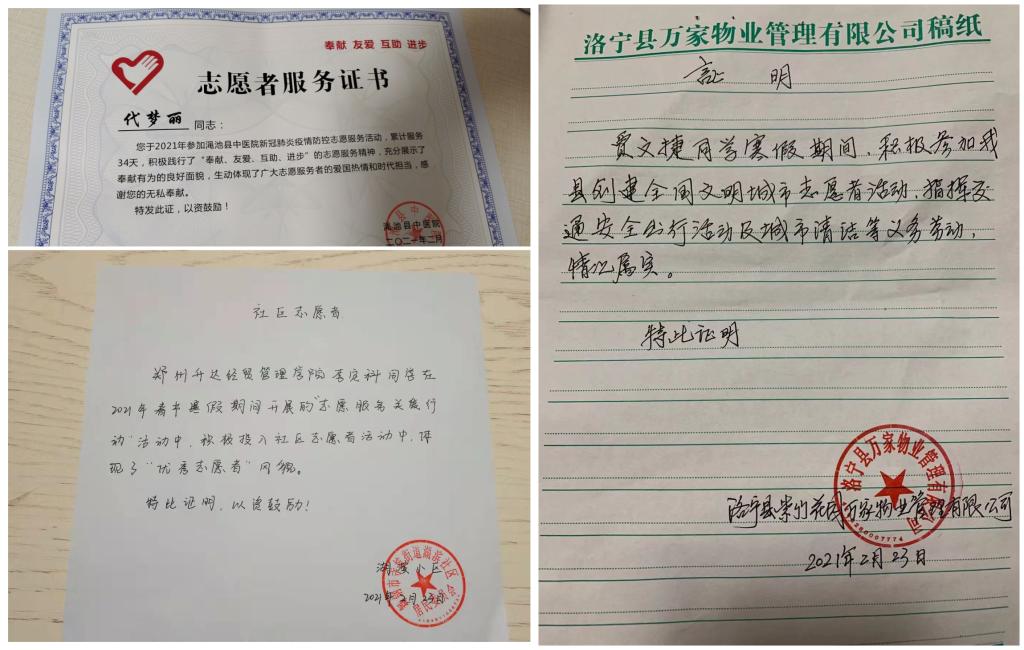 奉献 友爱 互助 进步
志愿者服务证书
代梦丽 同志：
您于2021年参加渑池县中医院新冠肺炎疫情防控志愿服务活动，累计服务
34天，积极践行了“奉献、友爱、互助、进步”的志愿服务精神，充分展示了
奉献有为的良好面貌，生动体现了广大志愿服务者的爱国热情和时代担当，感
谢您的无私奉献。
特发此证，以资鼓励！
渑池县中医院
二〇二一年二月
社区志愿者
郑州升达经贸管理学院 科同学在
2021年 寒假期间开展的“志愿服务 行
动”活动中，积极投入社区志愿者活动中，体
现了“优秀志愿者”风貌。
特此证明，以资鼓励！
湖 小区
2021年2月23日
街道湖滨社区
居民委员会
洛宁县万家物业管理有限公司稿纸
证 明
贾文捷同学寒假期间，积极参加我
县创建全国文明城市志愿者活动，指挥交
通安全出行活动及城市清洁等义务劳动，
情况属实。
特此证明
洛宁县紫竹花园万家物业管理有限公司
2021年2月23日
洛宁县万家物业管理有限公司